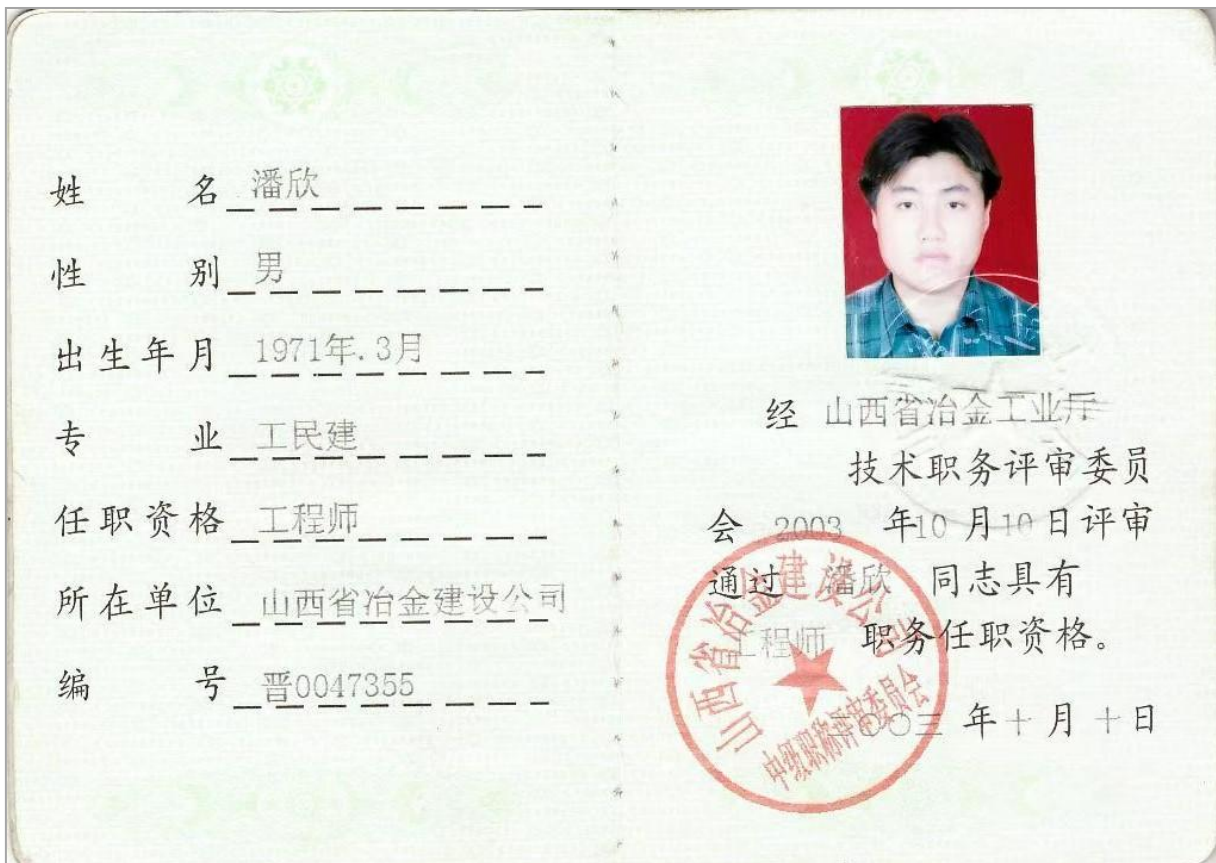 姓名 潘欣
性别 男
出生年月 1971年.3月
专业 工民建
任职资格 工程师
所在单位 山西省冶金建设公司
编号 晋0047355
经 山西省冶金工业厅
技术职务评审委员
会 2003 年10月10日评审
通过 潘欣 同志具有
工程师 职务任职资格。
二〇〇三 年十月十日
山西省冶金建设公司
中级职称评审委员会